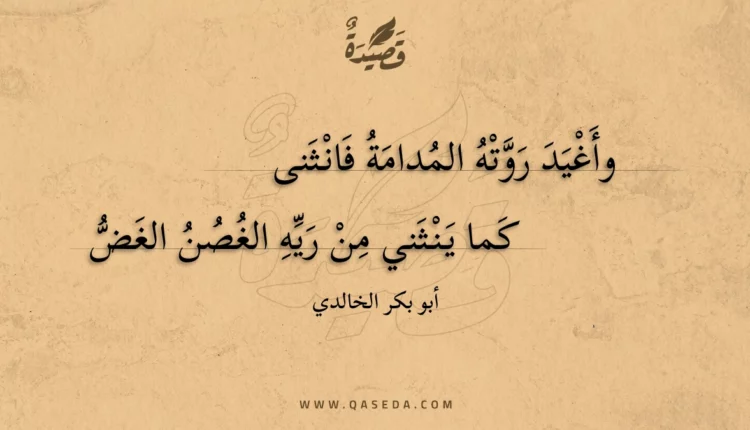 قَصِيدَةٌ
وأَغْيَدَ رَوَّتْهُ المُدامَةُ فَانْثَنى
كَما يَنْثَني مِنْ رَيِّهِ الغُصُنُ الغَضُّ
أبو بكر الخالدي
WWW.QASEDA.COM